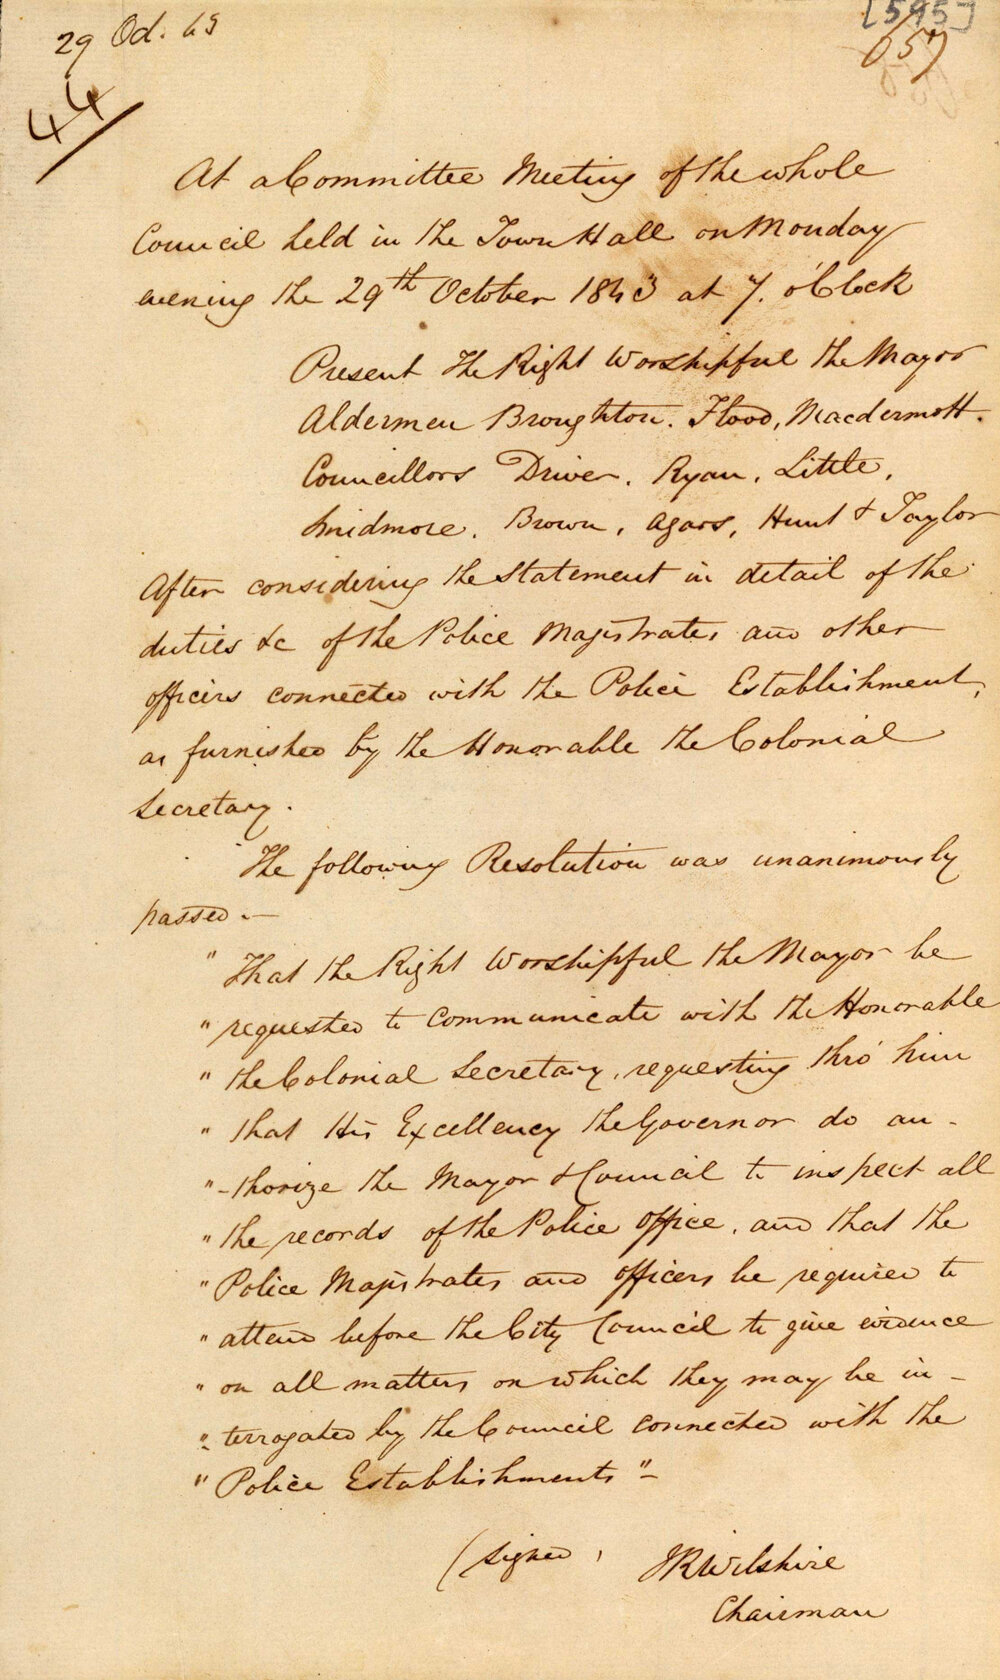 29 Oct. 43
[595]
657
44
At a Committee Meeting of the whole
Council held in the Town Hall on Monday
evening the 29th October 1843 at 7. o'Clock
Present The Right Worshipful the Mayor
Aldermen Broughton. Flood, Macdermott.
Councillors Driver. Ryan, Little,
Smidmore. Brown, Agars, Hunt & Taylor
After considering the statement in detail of the
duties &c of the Police Magistrates and other
officers connected with the Police Establishment,
as furnished by the Honorable the Colonial
Secretary.
The following Resolution was unanimously
passed. —
" That the Right Worshipful the Mayor be
" requested to communicate with the Honorable
" the Colonial Secretary, requesting thro' him
" that His Excellency the Governor do au-
" -thorize the Mayor & Council to inspect all
" the records of the Police office, and that the
" Police Magistrates and officers be required to
" attend before the City Council to give evidence
" on all matters on which they may be in-
" terrogated by the Council connected with the
" Police Establishments " —
(signed, JR Wilshire
Chairman